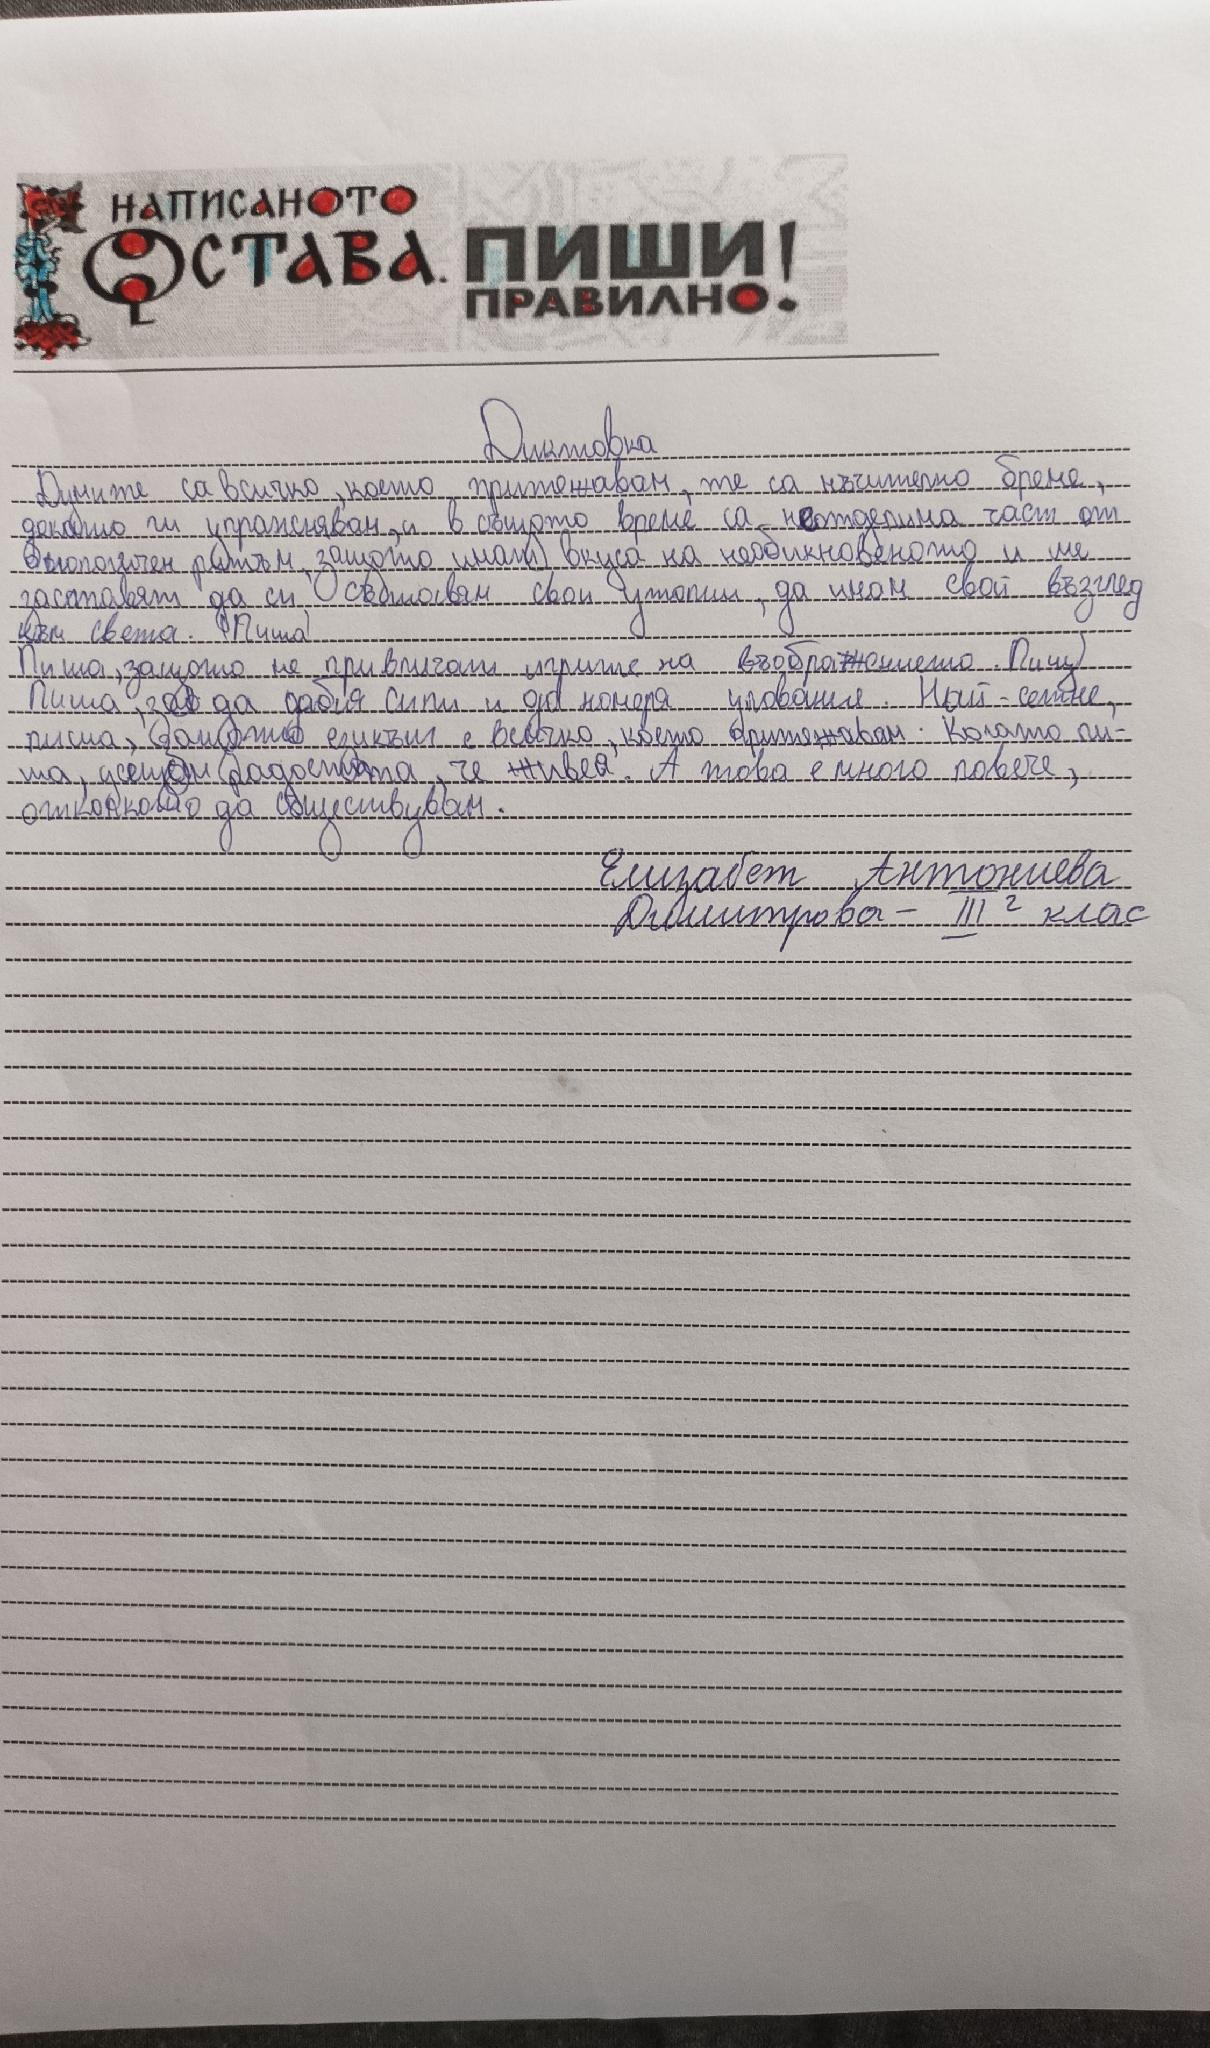 НАПИСАНОТО
ОСТАВА. ПИШИ
ПРАВИЛНО!
Диктовка
Думите са всичко, което притежавам, те са мъчително бреме,
докато ги упражнявам, и в същото време са неотделима част от
биологичен ритъм, защото имат вкуса на необикновеното и ме
заставят да си осмислям свои утопии, да имам свой възглед
към света. Пиша
Пиша, защото ме привличат игрите на въображението. Пишу
Пиша, за да добия сили и да намеря упование. Най-сетне,
писма, защото езикът е всичко, което притежавам. Когато пи-
ша, усещам радостта, че живея. А това е много повече,
отколкото да съществувам.
Елизабет Антониева
Димитрова - III г клас